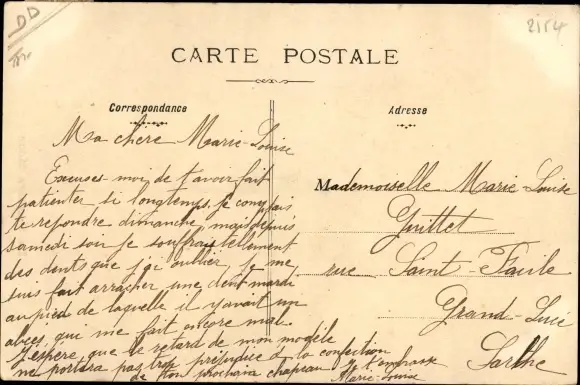 DD
2154
CARTE POSTALE
Correspondance
Adresse
Ma chère Marie-Louise
Excuses-moi de t'avoir fait
patienter si longtemps, je comptais
te répondre dimanche, mais depuis
samedi soir je souffrais tellement
des dents que j'ai oublier. Je me
suis fait arracher une dent mardi
au pied de laquelle il y avait un
abcès, qui me fait encore mal.
J'espère que le retard de mon modèle
ne portera pas trop préjudice à la confection
de ton prochain chapeau. Je t'embrasse
Marie-Louise
Mademoiselle Marie Louise
Guittet
rue Saint-Facile
Grand-Lucé
Sarthe